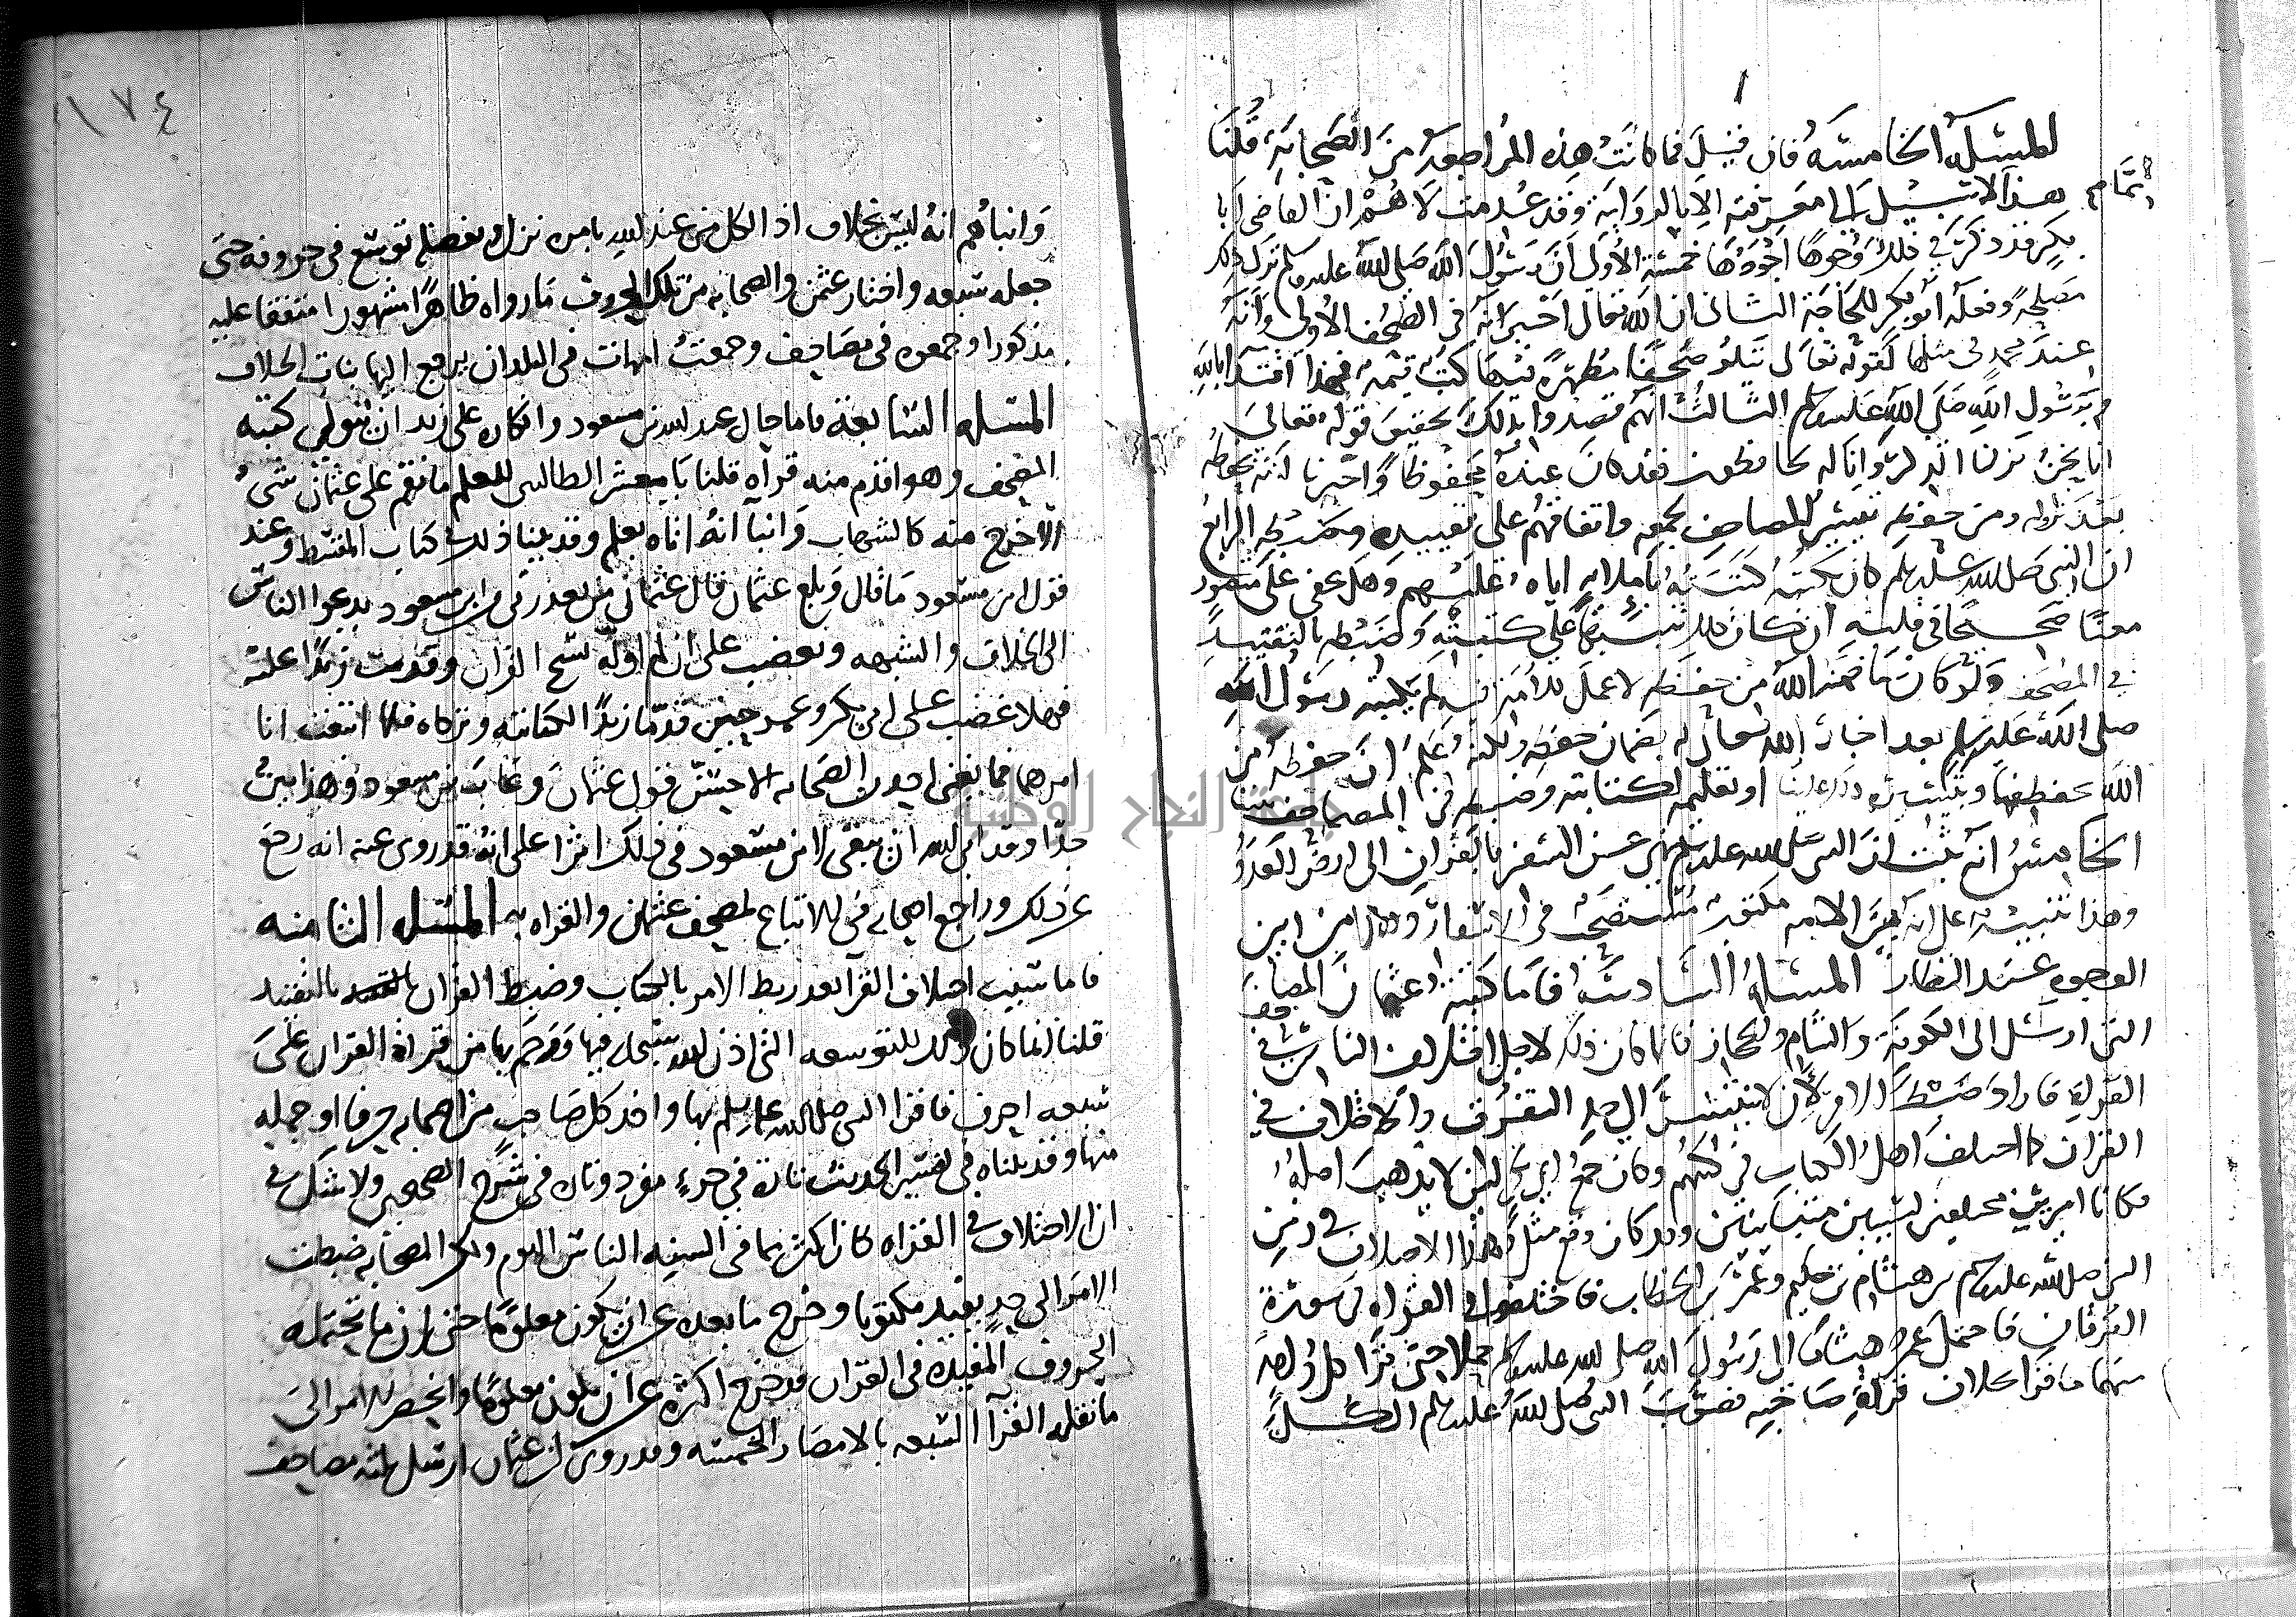 المسئلة الخامسة فان قيل فما كانت هذه المراجعة من الصحابة قلنا
هذا لا سبيل الى معرفته الا بالرواية وقد عدمت لا هم ان القاضي ابا
بكر قد ذكر في ذلك وجوها اجودها خمسة الاول ان رسول الله صلى الله عليه وسلم ترك ذلك
مصلحة وفعله ابو بكر للحاجة الثاني ان الله تعالى اخبر انه في الصحف الاولى وانه
عند محمد في مثلها لقوله تعالى يتلو صحفا مطهرة فيها كتب قيمة فهذا اقتداء بالله
وبرسول الله صلى الله عليه وسلم الثالث انهم قصدوا بذلك تحقيق قوله تعالى
انا نحن نزلنا الذكر وانا له لحافظون فقد كان عنده محفوظا واخبرنا انه يحفظه
بعد نزوله ومن حفظه تيسير الصحابة لجمعه واتفاقهم على تقييده وضبطه الرابع
ان النبي صلى الله عليه وسلم كان يكتبه كتبته باملايه اياه عليهم وهل يخفى على متصور
معنى صحيحا في قلبه ان ذلك كان تنبيها على كتبته وضبطه بالتقييد
في الصحف ولو كان ما ضمنه الله من حفظه لا عمل للامة فيه لم يكتبه رسول الله
صلى الله عليه وسلم بعد اخبار الله تعالى له بضمان حفظه ولكنه علم ان حفظه من
الله بحفظنا وتيسيره ذلك علينا او تعليمه لكتابته وضبطه في المصاحف بيننا
الخامس انه ثبت ان النبي صلى الله عليه وسلم نهى عن السفر بالقران الى ارض العدو
وهذا تنبيه على انه بين الامة مكتوب مستصحب في الاسفار وهذا من ابين
الوجوه عند النظار المسئلة السادسة فاما كتبة عثمان المصاحف
التي ارسل الى الكوفة والشام والحجاز فانما كان ذلك لاجل اختلاف الناس في
القراة فاراد ضبط الامر لان لا ينتشر الى حد التفرق والاختلاف في
القران كما اختلف اهل الكتاب في كتبهم وكان جمع ابي بكر لين لا يذهب اصله
فكانا امرين مختلفين لسببين متباينين وقد كان وقع مثل هذا الاختلاف في زمن
النبي صلى الله عليه وسلم بين هشام بن حكيم وعمر بن الخطاب فاختلفوا في القراه في سورة
الفرقان فاحتمل عمر هشاما الى رسول الله صلى الله عليه وسلم حملا حتى قرا كل واحد
منهما ما قرا بخلاف قراة صاحبه فصوب النبي صلى الله عليه وسلم الكل
تمام
١٧٤
وانباهم انه ليس بخلاف اذ الكل من عند الله بامره نزل وبفضله توسع في حروفه حتى
جعله سبعه واختار عثمن والصحابه من تلك الحروف ما رواه ظاهرا مشهورا متفقا عليه
مذكورا وجمعوه في مصاحف وجمعت امهات في البلدان يرجع اليها بنات الخلاف
المسئله السابعة فاما حال عبد الله بن مسعود وانكاره على زيد ان يتولى كتبه
المصحف وهو اقدم منه قراه قلنا يا معشر الطالبين للعلم ما نقم على عثمان شيء
الا خرج منه كالشهاب وانبا انه اتاه بعلم وقد بينا ذلك في كتاب المقسط وعند
قول ابن مسعود ما قال وبلغ عثمان قال عثمان من يعذرني من ابن مسعود يدعوا الناس
الى الخلاف والشبهه وتعصب على ان لم اوله نسخ القران وقدمت زيدا عليه
فهلا غضب على ابي بكر وعمر حين قدما زيدا لكتابته وتركاه فلما اتبعت انا
امرهما فما بقي احد من الصحابه الا حسن قول عثمان وعاب بن مسعود وهذا بين
جدا وقد ابى الله ان يبقى لابن مسعود في ذلك اثرا على انه قد روي عنه انه رجع
عن ذلك وراجع اصحابه في الاتباع لمصحف عثمان والقراه به المسئله الثامنه
فاما سبب اختلاف القرا بعد ربط الامر بالكتاب وضبط القران بالتقييد
قلنا انما كان ذلك للتوسعه التي اذن الله سبحانه فيها ورحم بها من قراة القران على
سبعه احرف فاقرا النبي صلى الله عليه وسلم بها واخذ كل صاحب من اصحابه حرفا او جمله
منها وقد بيناه في تفسير الحديث تارة في جزء مفرد وتاره في شرح الصحيحين ولا شك في
ان الاختلاف في القراه كان اكثر مما في السنه الناس اليوم ولكن الصحابه ضبطت
الامر الى حد يقيد مكتوبا وخرج ما بعده عن ان يكون معلوما حتى ان ما تحتمله
الحروف المقيده في القران قد خرج اكثره عن ان يكون معلوما وانحصر الامر الى
ما نقله القرا السبعه بالامصار الخمسه وقد روي ان عثمان ارسل ثلثه مصاحف
جامعة النجاح الوطنية